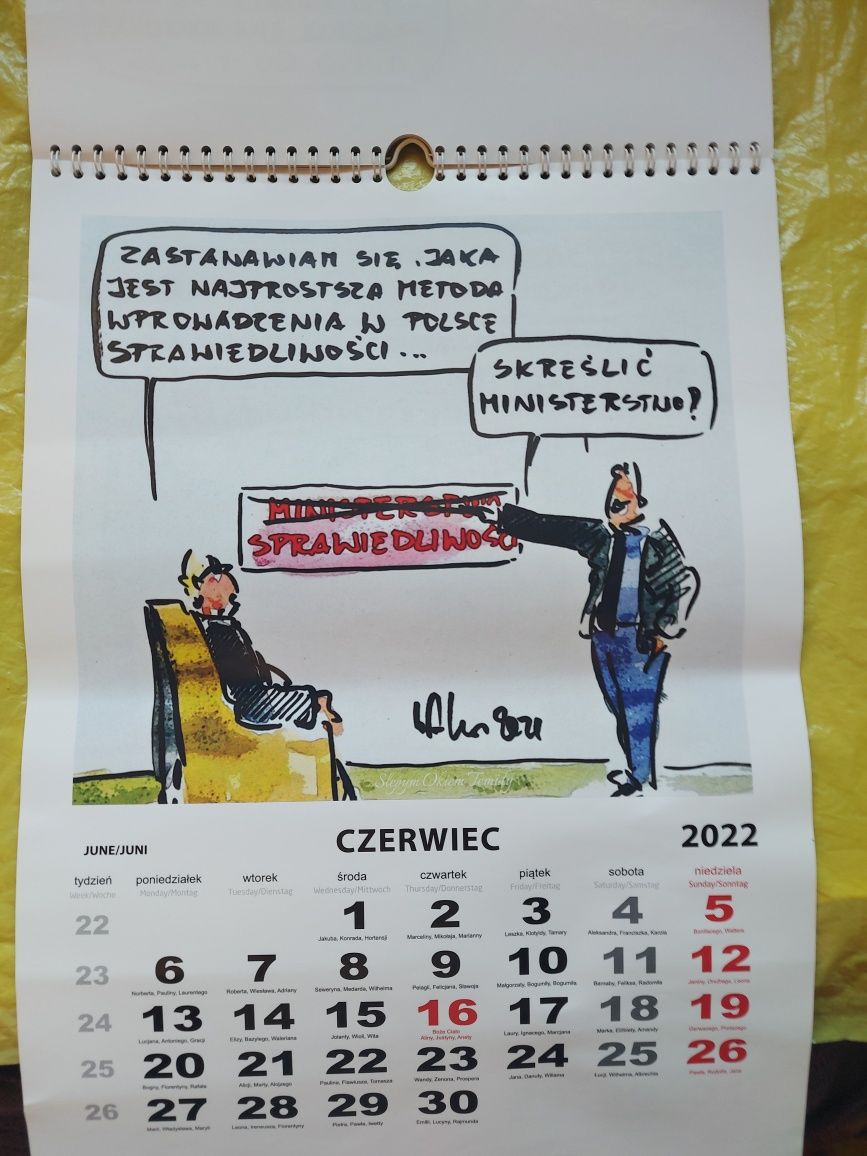 ZASTANAWIAM SIĘ, JAKA
JEST NAJPROSTSZA METODA
WPROWADZENIA W POLSCE
SPRAWIEDLIWOŚCI...
SKREŚLIĆ
MINISTERSTWO?
MINISTERSTWO
SPRAWIEDLIWOŚCI
Ślepym Okiem Temidy
JUNE/JUNI CZERWIEC 2022
tydzień poniedziałek wtorek środa czwartek piątek sobota niedziela
Week/Woche Monday/Montag Tuesday/Dienstag Wednesday/Mittwoch Thursday/Donnerstag Friday/Freitag Saturday/Samstag Sunday/Sonntag
22 1 2 3 4 5
Jakuba, Konrada, Hortensji Marceliny, Mikołaja, Marianny Leszka, Klotyldy, Tamary Aleksandra, Franciszka, Karola Bonifacego, Waltera
23 6 7 8 9 10 11 12
Norberta, Pauliny, Laurentego Roberta, Wiesława, Adriany Seweryna, Medarda, Wilhelma Pelagii, Felicjana, Sławoja Małgorzaty, Bogumiły, Bogumiła Barnaby, Feliksa, Radomiła Janiny, Onufrego, Leona
24 13 14 15 16 17 18 19
Boże Ciało
Lucjana, Antoniego, Gracji Elizy, Bazylego, Waleriana Jolanty, Wioli, Wita Aliny, Justyny, Anety Laury, Ignacego, Marcjana Marka, Elżbiety, Amandy Gerwazego, Protazego
25 20 21 22 23 24 25 26
Bogny, Florentyny, Rafała Alicji, Marty, Alojzego Paulina, Flawiusza, Tomasza Wandy, Zenona, Prospera Jana, Danuty, Wiliama Łucji, Wilhelma, Albrechta Pawła, Rudolfa, Jana
26 27 28 29 30
Marii, Władysława, Maryli Leona, Ireneusza, Florentyny Piotra, Pawła, Iwetty Emilii, Lucyny, Rajmunda